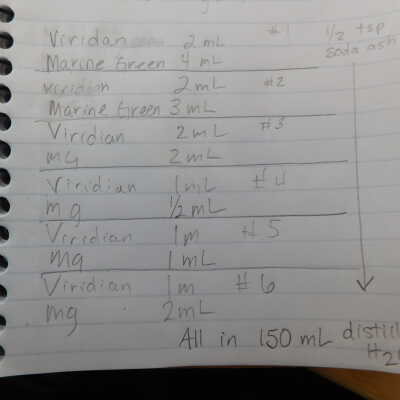 Viridan 2 mL #1 1/2 tsp
Marine Green 4 mL soda ash
viridian 2 mL #2
Marine Green 3 mL
Viridian 2 mL #3
mg 2 mL
Viridian 1 mL #4
mg 1/2 mL
Viridian 1 m #5
mg 1 mL
Viridian 1 m #6
mg 2 mL
All in 150 mL